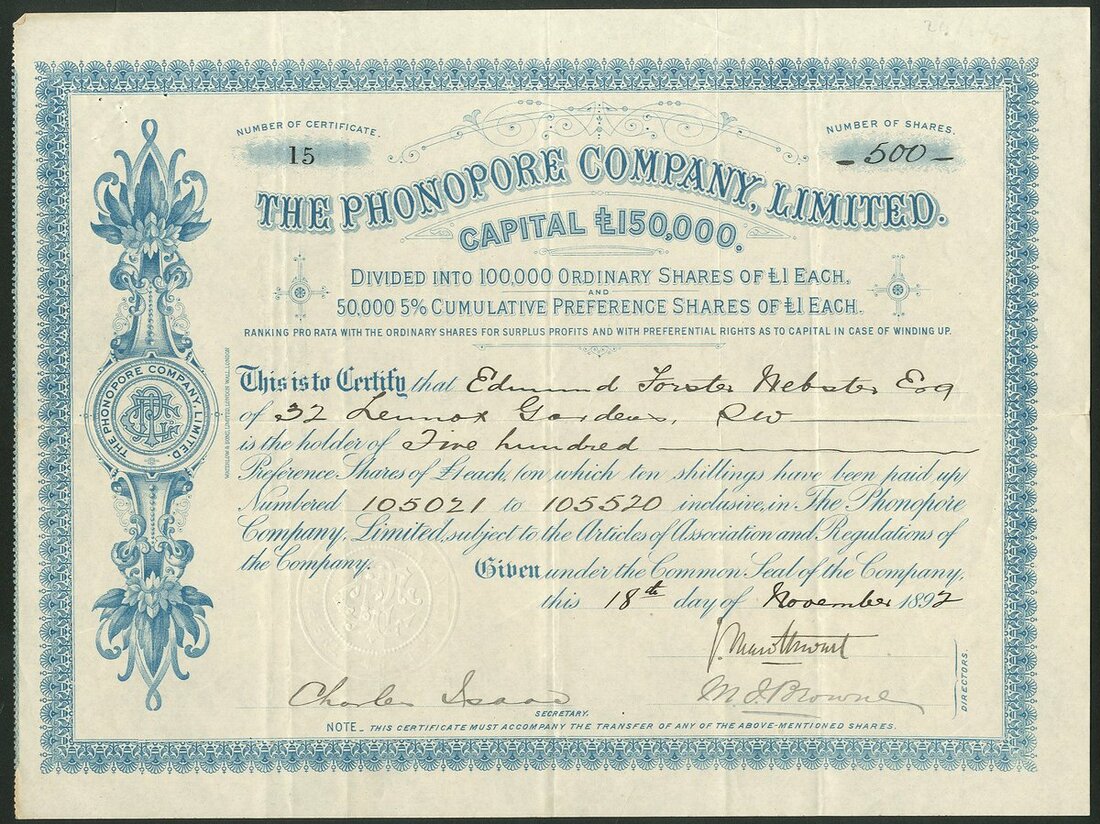 NUMBER OF CERTIFICATE.
15
NUMBER OF SHARES.
500
THE PHONOPORE COMPANY, LIMITED.
CAPITAL £150,000.
DIVIDED INTO 100,000 ORDINARY SHARES OF £1 EACH,
AND
50,000 5% CUMULATIVE PREFERENCE SHARES OF £1 EACH.
RANKING PRO RATA WITH THE ORDINARY SHARES FOR SURPLUS PROFITS AND WITH PREFERENTIAL RIGHTS AS TO CAPITAL IN CASE OF WINDING UP.
This is to Certify that Edmund Forster Webster Esq
of 32 Lennox Gardens, SW
is the holder of Five hundred
Preference Shares of £1 each, (on which ten shillings have been paid up)
Numbered 105021 to 105520 inclusive, in The Phonopore
Company, Limited, subject to the Articles of Association and Regulations of
the Company.
Given under the Common Seal of the Company,
this 18th day of November 1892
M. J. Browne
DIRECTORS.
Charles Isaac
SECRETARY.
NOTE_ THIS CERTIFICATE MUST ACCOMPANY THE TRANSFER OF ANY OF THE ABOVE-MENTIONED SHARES.
THE PHONOPORE COMPANY, LIMITED
WATERLOW & SONS LIMITED, LONDON WALL, LONDON